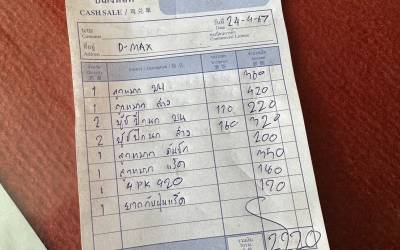 บิลเงินสด
CASH SALE / 現兌單
วันที่ Date 24-4-67
นาม Customer
ที่อยู่ Address D-MAX
จำนวน Quantity รายการ / DESCRIPTION / 貨名 หน่วยละ จำนวนเงิน
1 ลูกหมาก บน 360
1 ลูกหมาก ล่าง 420
2 บู๊ชปีกนก บน 110 220
2 บู๊ชปีกนก ล่าง 160 320
1 ลูกหมาก คันชัก 200
1 ลูกหมาก แร็ค 350
1 4PK 920 180
1 ยางกันฝุ่นแร็ค 170
รวมเงิน TOTAL 2220